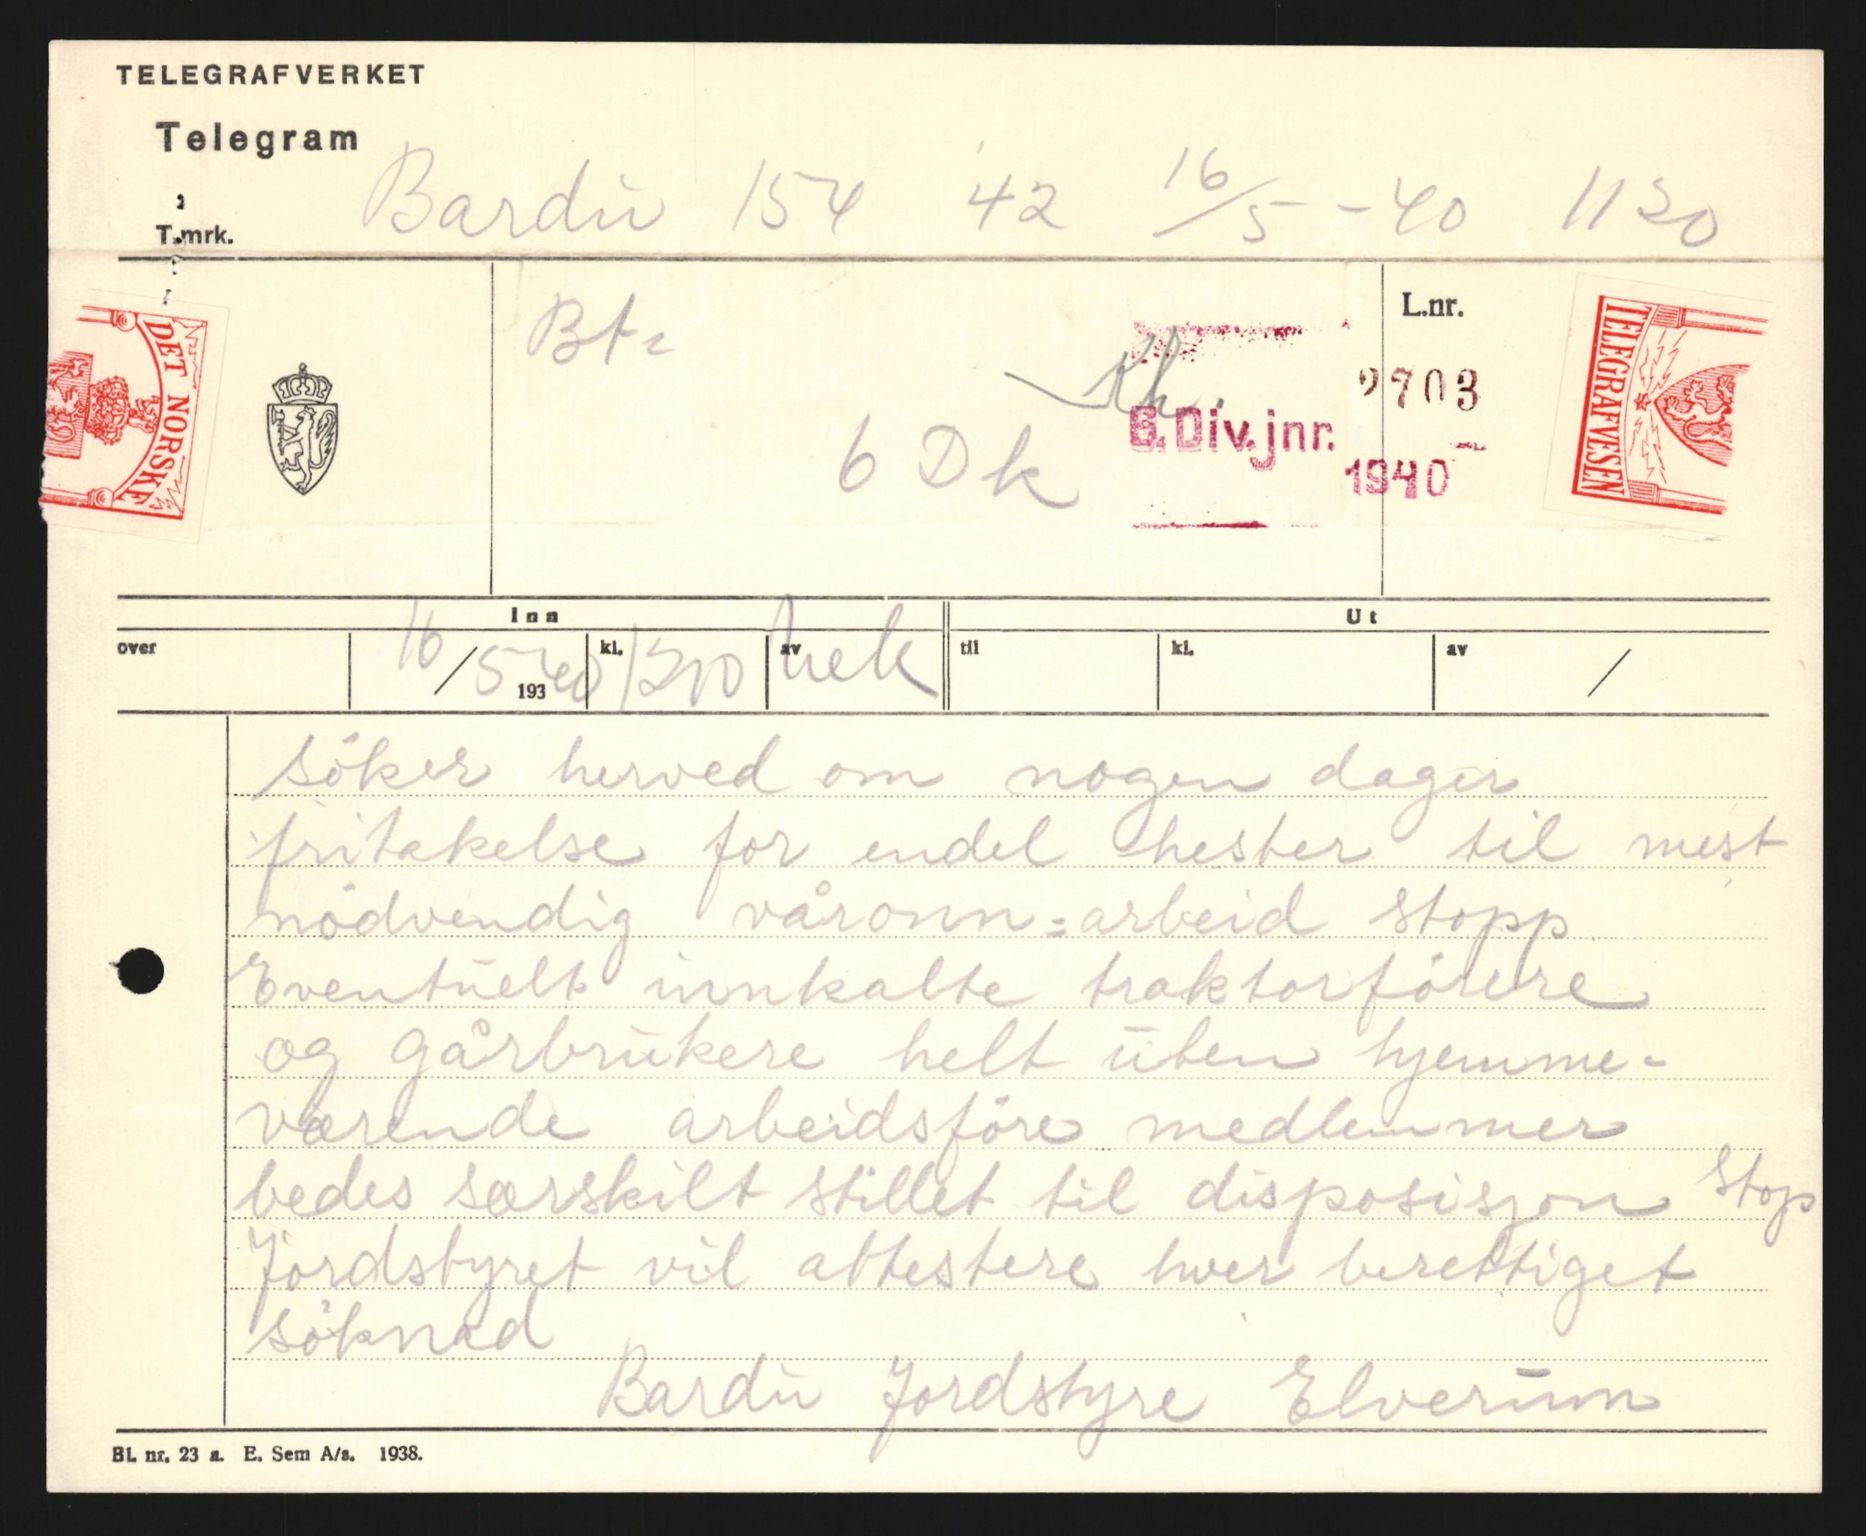 TELEGRAFVERKET
Telegram
T.mrk.
Bardu 154 42 16/5-40 1120
DET NORSKE
Bt=
Kh.
L.nr.
2703
6 Dk
6. Div. jnr.
1940
TELEGRAFVESEN
Inn
Ut
over
16/5 40
193
kl. 1200
av
til
kl.
av
/
söker herved om nogen dager
fritakelse for endel hester til mest
nödvendig våronn=arbeid stopp
Eventuelt innkalte traktorförere
og gårbrukere helt uten hjemme=
værende arbeidsföre medlemmer
bedes særskilt stillet til disposisjon Stop
Jordstyret vil attestere hver berettiget
söknad
Bardu Jordstyre Elverum
Bl. nr. 23 a. E. Sem A/s. 1938.